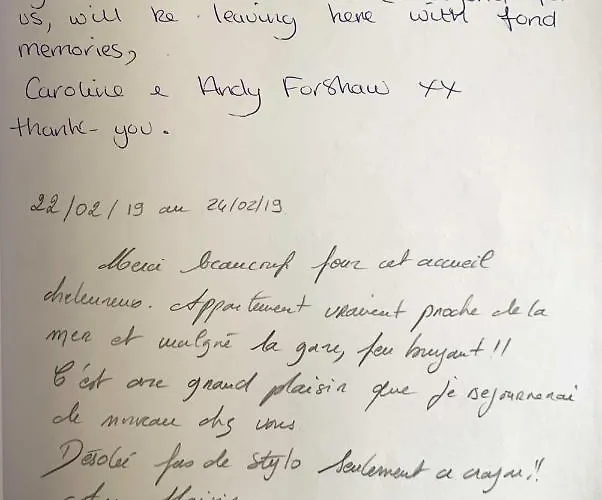 us, will be leaving here with fond
memories,
Caroline & Andy Forshaw xx
thank-you.
22/02/19 au 24/02/19
Merci beaucoup pour cet accueil
chaleureux. Appartement vraiment proche de la
mer et malgré la gare, peu bruyant!!
C'est avec grand plaisir que je sejournerai
de nouveau chez vous
Désolé pas de stylo seulement ce crayon!!